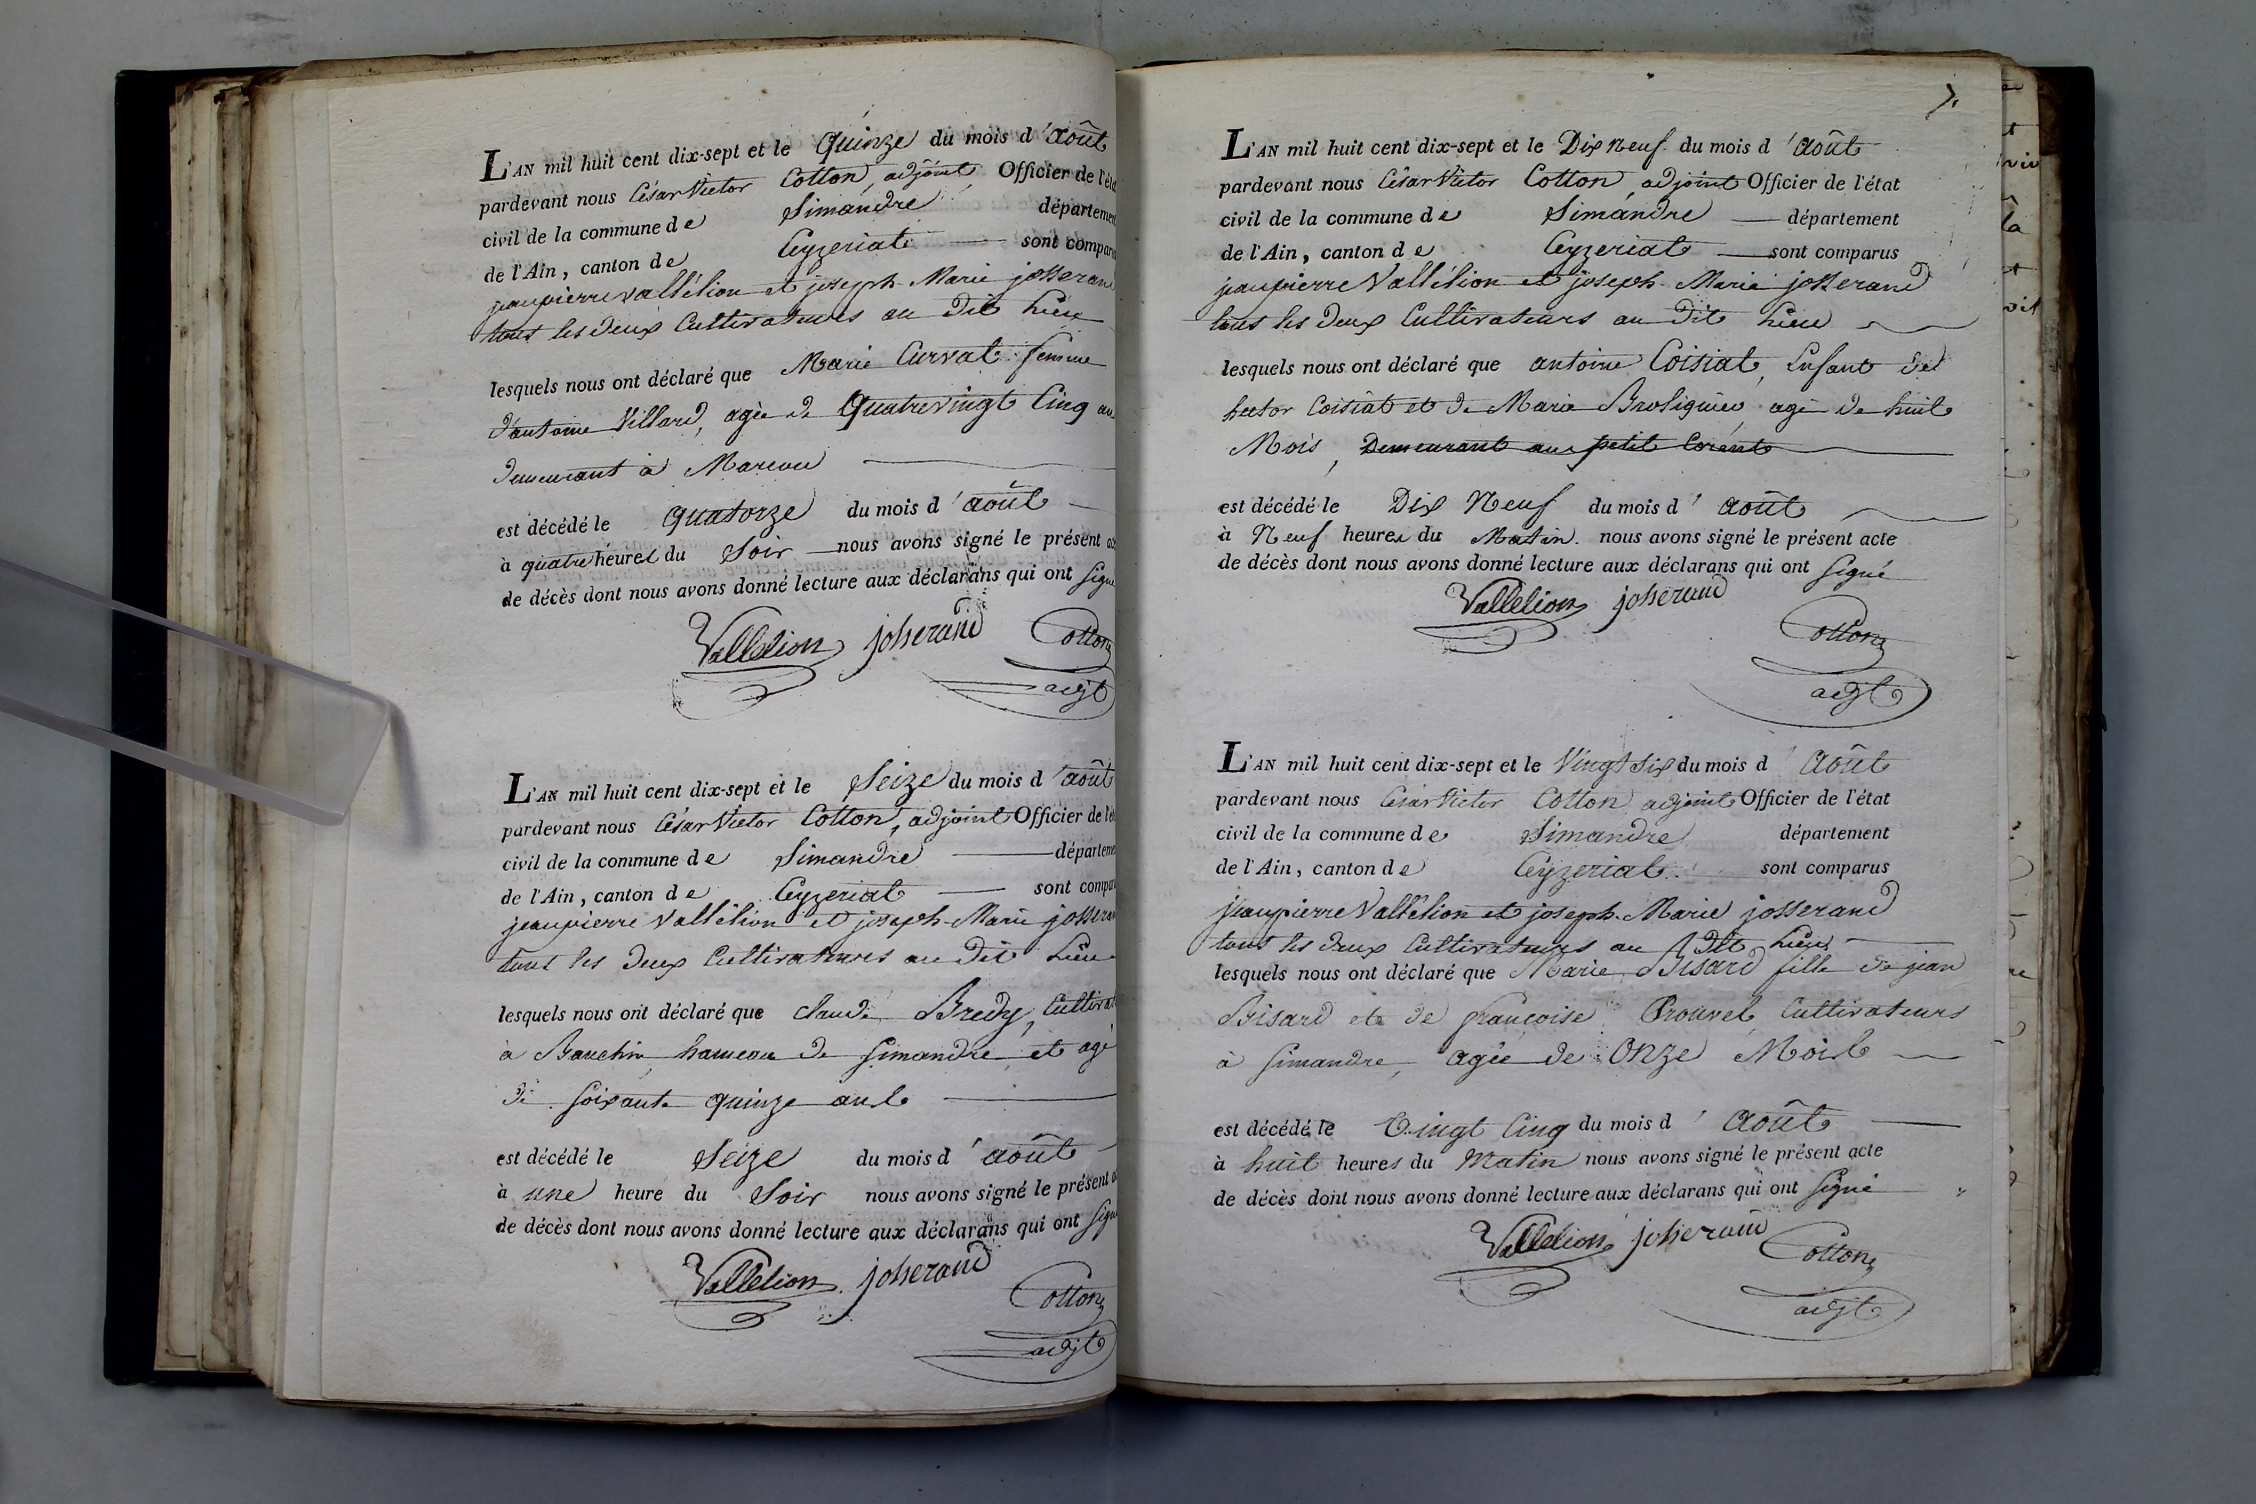 L'AN mil huit cent dix-sept et le Quinze du mois d'août
pardevant nous César Victor Cotton, adjoint Officier de l'éta
civil de la commune de Simandre départemen
de l'Ain, canton de Ceyzeriat sont compar
jeanpierre Vallélion et joseph-Marie josseran
tous les deux Cultivateurs au dit Lieu
lesquels nous ont déclaré que Marie Curvat femme
d'antoine Villard, agée de Quatrevingt Cinq an
demeurant à
est décédé le quatorze du mois d'août
à quatre heures du Soir nous avons signé le présent ac
de décès dont nous avons donné lecture aux déclarans qui ont signé
Vallélion josserand Cotton
adjt
L'AN mil huit cent dix-sept et le Seize du mois d'août
pardevant nous César Victor Cotton, adjoint Officier de l'ét
civil de la commune de Simandre départeme
de l'Ain, canton de Ceyzeriat sont compar
jeanpierre Vallélion et joseph-Marie josseran
tous les deux Cultivateurs au dit Lieu
lesquels nous ont déclaré que claude Bredy, Cultivat
à Banchin, hameau de Simandre, et agé
de soixante quinze ans
est décédé le Seize du mois d'août
à une heure du Soir nous avons signé le présent a
de décès dont nous avons donné lecture aux déclarans qui ont signé
Vallélion josserand
Cotton
adjt
L'AN mil huit cent dix-sept et le Dix neuf du mois d'août
pardevant nous César Victor Cotton, adjoint Officier de l'état
civil de la commune de Simandre département
de l'Ain, canton de Ceyzeriat sont comparus
jeanpierre Vallélion et joseph-Marie josserand
tous les deux Cultivateurs au dit Lieu
lesquels nous ont déclaré que antoine Coisiat, Enfant de
hector Coisiat et de Marie agé de huit
Mois, Demeurant au petit Corent
est décédé le Dix Neuf du mois d'août
à Neuf heures du Matin nous avons signé le présent acte
de décès dont nous avons donné lecture aux déclarans qui ont signé
Vallélion josserand
Cotton
adjt
L'AN mil huit cent dix-sept et le Vingt six du mois d'Août
pardevant nous César Victor Cotton adjoint Officier de l'état
civil de la commune de Simandre département
de l'Ain, canton de Ceyzeriat sont comparus
jeanpierre Vallélion et joseph-Marie josserand
tous les deux Cultivateurs au dit Lieu
lesquels nous ont déclaré que Marie Bisard fille de jean
Bisard et de françoise Prouvel Cultivateurs
à Simandre, agée de Onze Mois
est décédé le Vingt Cinq du mois d'Août
à huit heures du Matin nous avons signé le présent acte
de décès dont nous avons donné lecture aux déclarans qui ont signé
Vallélion josserand
Cotton
adjt